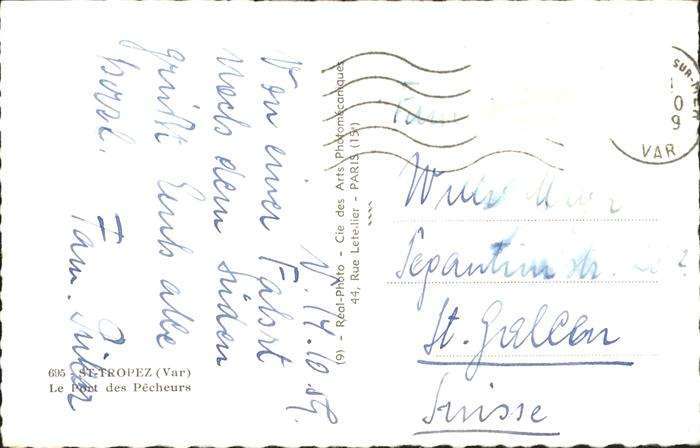 V. 14.10.59.
Von einer Fahrt
nach dem Süden
grüßt Euch alle
herzl.
Fam.
695 ST-TROPEZ (Var)
Le Port des Pêcheurs
(9) - Réal-Photo - Cie des Arts Photomécaniques
44, Rue Letellier - PARIS (15e)
SUR-MER
VAR
Fam.
Willi
St. Gallen
Suisse